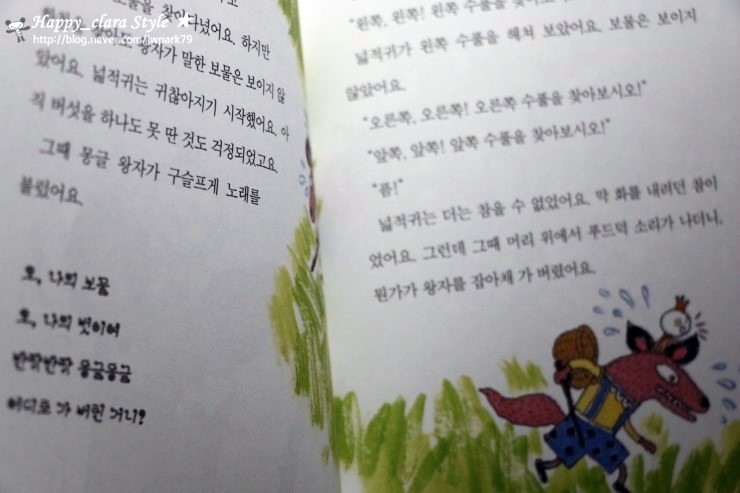 Happy_clara Style
http://blog.naver.com/lwnark79
보물을 찾아다녔어요. 하지만
왕자가 말한 보물은 보이지 않
았어요. 넓적귀는 귀찮아지기 시작했어요. 아
직 버섯을 하나도 못 딴 것도 걱정되었고요.
그때 몽글 왕자가 구슬프게 노래를
불렀어요.
오, 나의 보물
오, 나의 벗이여
반짝반짝 몽글몽글
어디로 가 버린 거니?
“왼쪽, 왼쪽! 왼쪽 수풀을
넓적귀가 왼쪽 수풀을 헤쳐 보았어요. 보물은 보이지
않았어요.
“오른쪽, 오른쪽! 오른쪽 수풀을 찾아보시오!”
“앞쪽, 앞쪽! 앞쪽 수풀을 찾아보시오!”
“콤!”
넓적귀는 더는 참을 수 없었어요. 막 화를 내려던 참이
었어요. 그런데 그때 머리 위에서 푸드덕 소리가 나더니,
뭔가가 왕자를 잡아채 가 버렸어요.